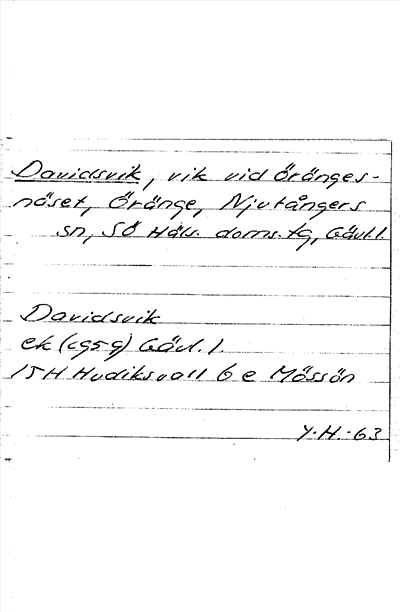 Davidsvik, vik vid Öränges-
näset, Öränge, Njutångers
sn, SÖ Häls. doms. tg, Gävl.l.
Davidsvik
ek (1959) Gävl. l.
15H Hudiksvall 6 e Mössön
Y.H.-63